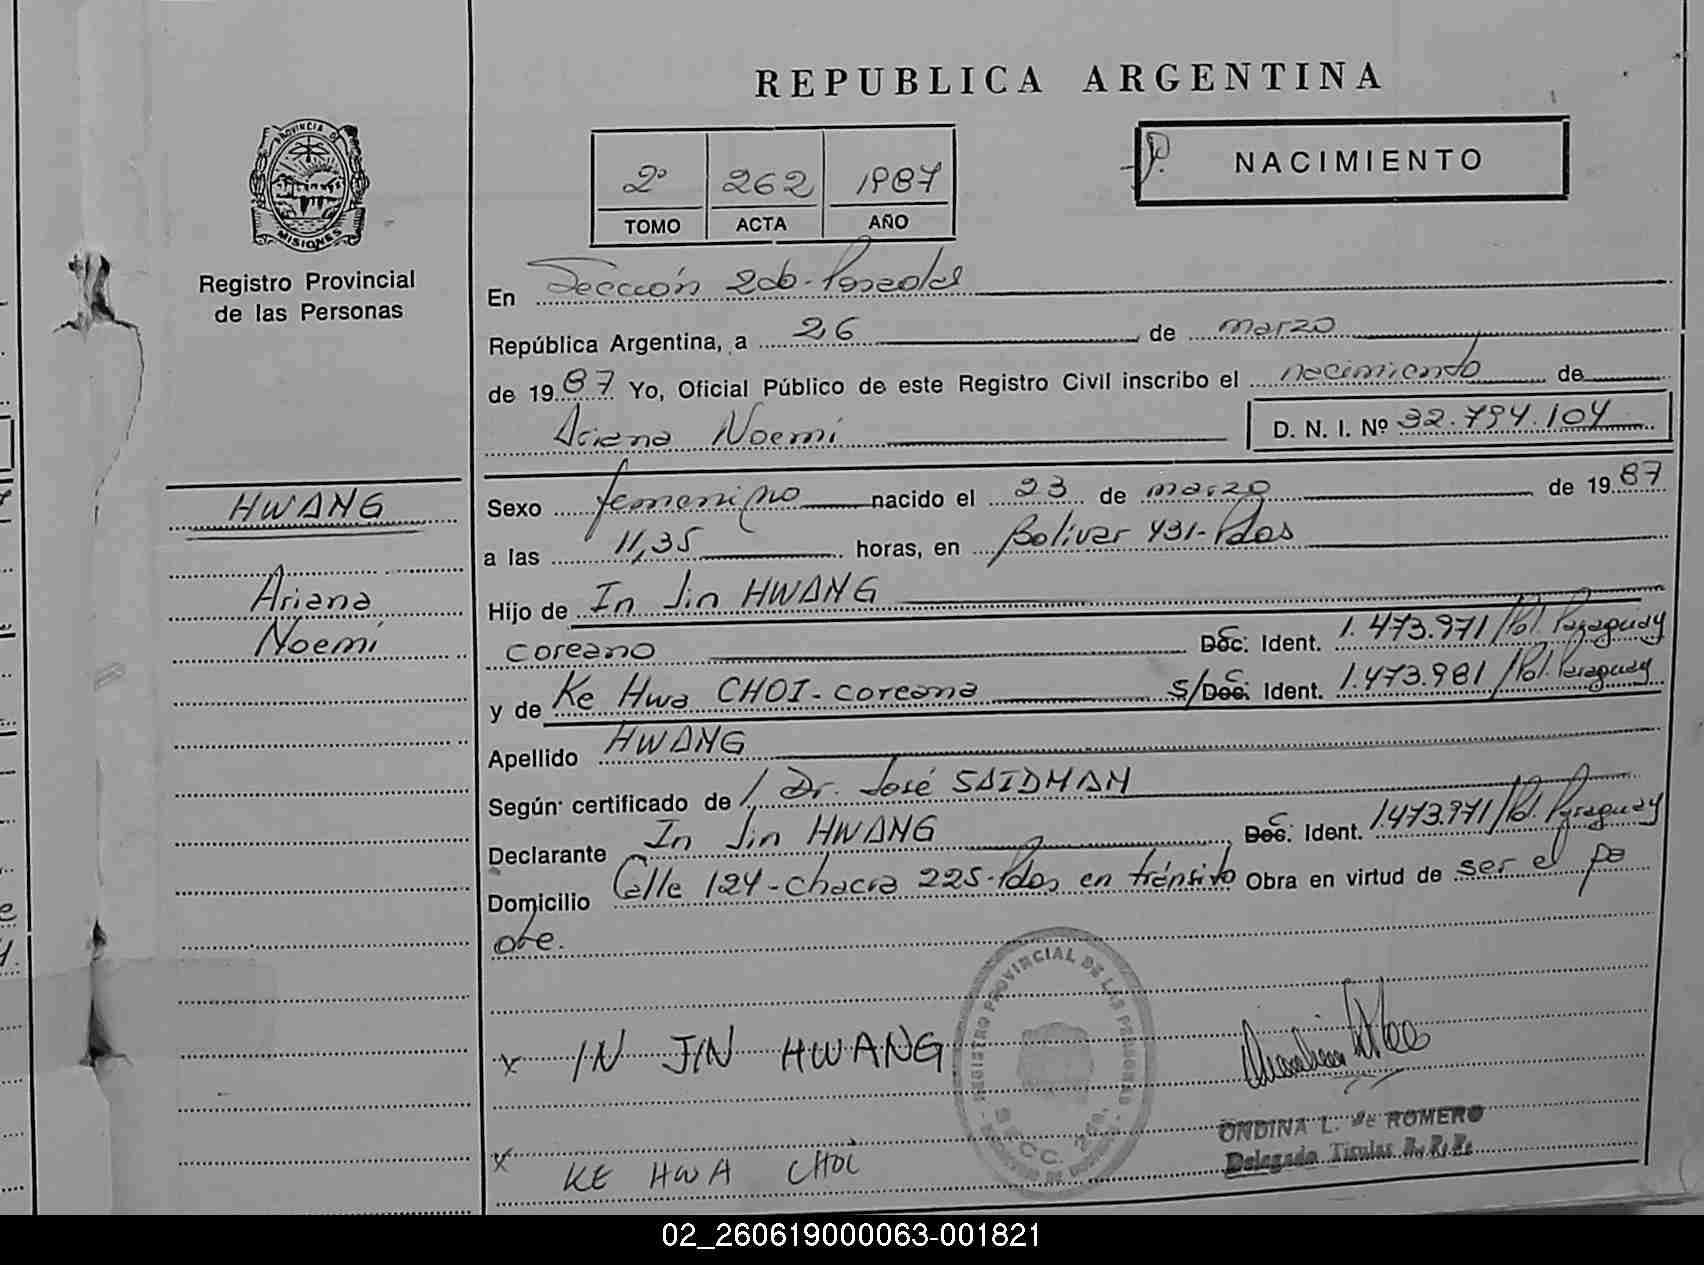 REPUBLICA ARGENTINA
PROVINCIA DE
MISIONES
Registro Provincial
de las Personas
2º 262 1987
TOMO ACTA AÑO
NACIMIENTO
En Sección 2da - Posadas
República Argentina, a 26 de marzo
de 1987 Yo, Oficial Público de este Registro Civil inscribo el nacimiento de
Ariana Noemí D. N. I. Nº 32.794.104
HWANG
Ariana
Noemí
Sexo femenino nacido el 23 de marzo de 1987
a las 11,35 horas, en Bolívar 431-Pdas
Hijo de In Jin HWANG
coreano Doc. C. Ident. 1.473.971/Pol. Paraguay
y de Ke Hwa CHOI - coreana s/Doc. C. Ident. 1.473.981/Pol. Paraguay
Apellido HWANG
Según certificado de / Dr. José SAIDMAN
Declarante In Jin HWANG Doc. C. Ident. 1.473.971/Pol. Paraguay
Domicilio Calle 124-chacra 225-Pdas en tránsito Obra en virtud de ser el pa
dre.
x IN JIN HWANG
REGISTRO PROVINCIAL DE LAS PERSONAS
SECC. 2da.
x KE HWA CHOI
ONDINA L. de ROMERO
Delegada Titular R. P. P.
02_260619000063-001821